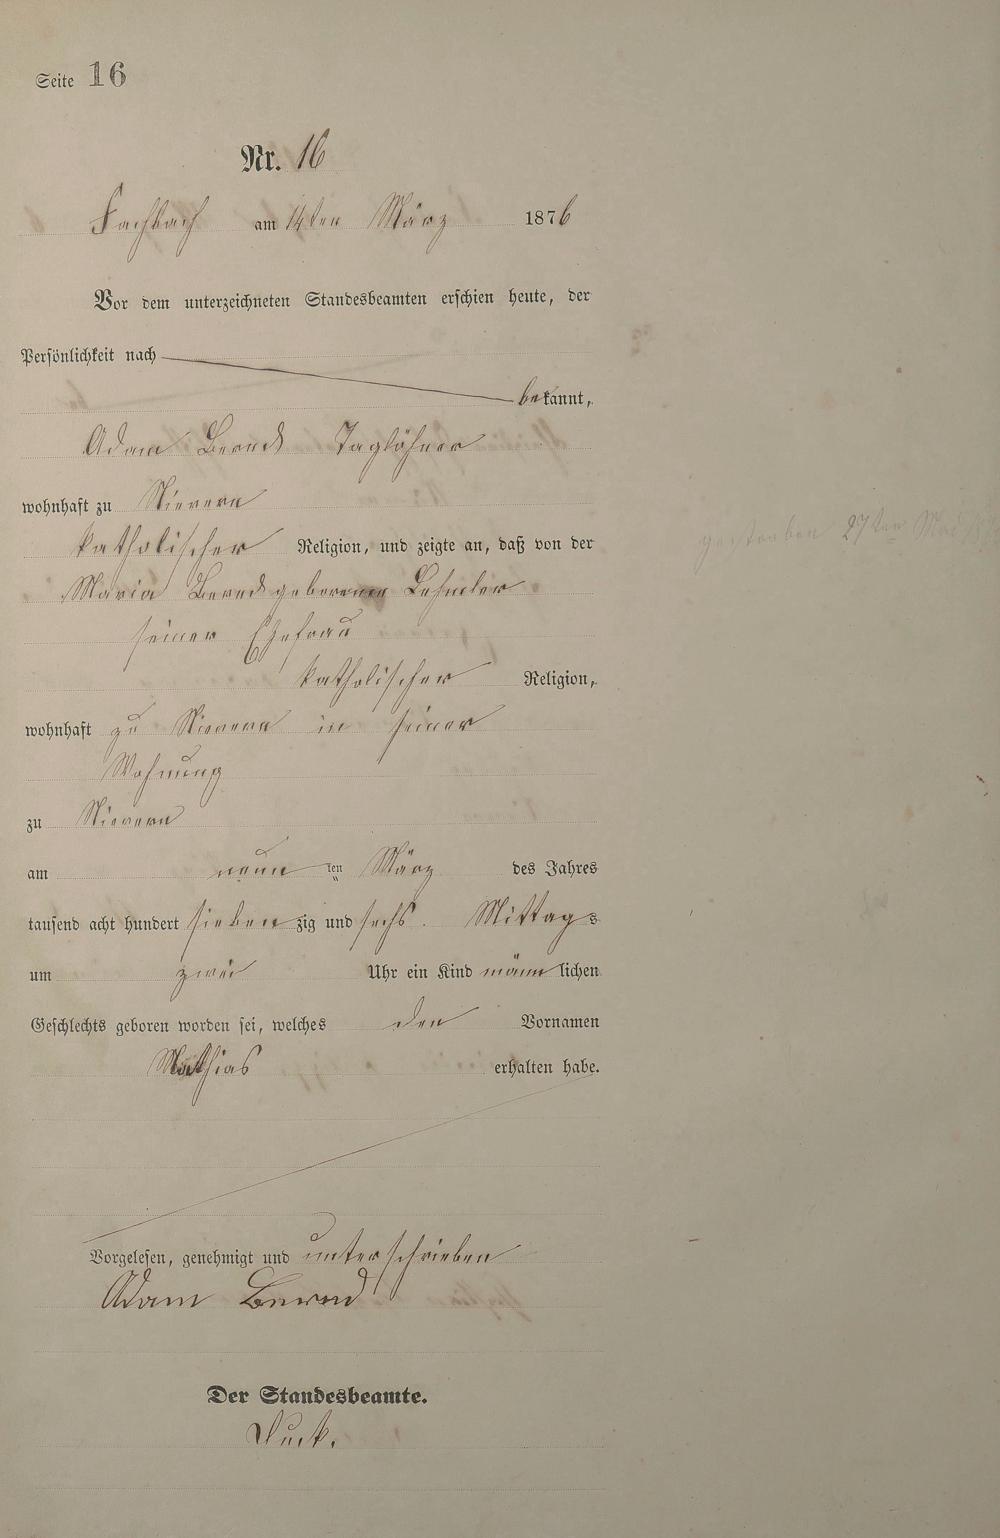 Seite 16
Nr. 16
Fachbach am 14ten März 1876
Vor dem unterzeichneten Standesbeamten erschien heute, der
Persönlichkeit nach
bekannt,
Adam Bernd Taglöhner
wohnhaft zu Nievern
katholischer Religion, und zeigte an, daß von der
Maria Bernd geborenen Lehmler
seiner Ehefrau
katholischer Religion,
wohnhaft zu Nievern in seiner
Wohnung
zu Nievern
am neun ten März des Jahres
tausend acht hundert sieben zig und sechs. Mittags
um zwei Uhr ein Kind männlichen
Geschlechts geboren worden sei, welches den Vornamen
Mathias erhalten habe.
Vorgelesen, genehmigt und unterschrieben
Adam Bernd
Der Standesbeamte.
gestorben 27ten